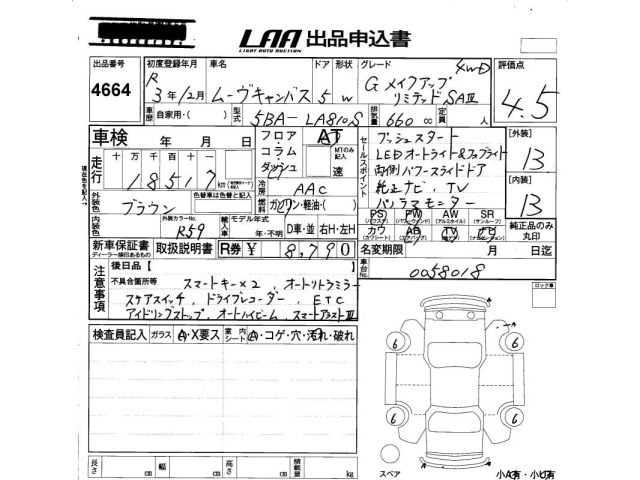 LAA 出品申込書
LIGHT AUTO AUCTION
出品番号 初度登録年月 車名 ドア 形状 グレード 評価点
4664 R 3年12月 ムーヴキャンバス 5 W G メイクアップ 4WD
リミテッド SAⅢ 4.5
車歴 自家用・( ) 型式 5BA-LA810S 排気量 660 cc 定員 人
車検 年 月 日 フロア・コラム・ダッシュ AT MTのみ記入 速
走行 十万千百十 18517 km
セールスポイント プッシュスタート
LEDオートライト&フォグライト
両側パワースライドドア
純正ナビ、TV
パノラマモニター
[外装] 13
[内装] 13
冷房 AAC
外装色 ブラウン 色替車は色替と記入 燃料 ガソリン・軽油・( )
外装カラーNo. R59 輸入車 モデル年式 年・不明 D車・並 右H・左H
PS PW AW SR
カワ AB TV ナビ 純正品のみ丸印
新車保証書 取扱説明書 R券 ¥ 8,790 名変期限 月 日迄
ディーラー捺印あるもの
注意事項 後日品【 】 車台No. 0058018
不具合箇所等 スマートキー×2, オートリトラミラー ロック車
ステアスイッチ, ドライブレコーダー, ETC
アイドリングストップ, オートハイビーム, スマートアシストⅢ
検査員記入 ガラス A・X要ス 室内シート A・コゲ・穴・汚れ・破れ
6 6
6 6
長さ cm 幅 cm 高さ cm 積載量 kg スペア 小A有・小U有